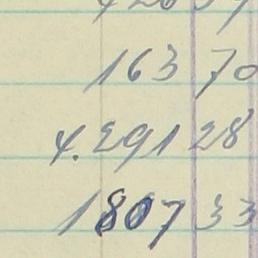 163 70
4.291 28
1807 33